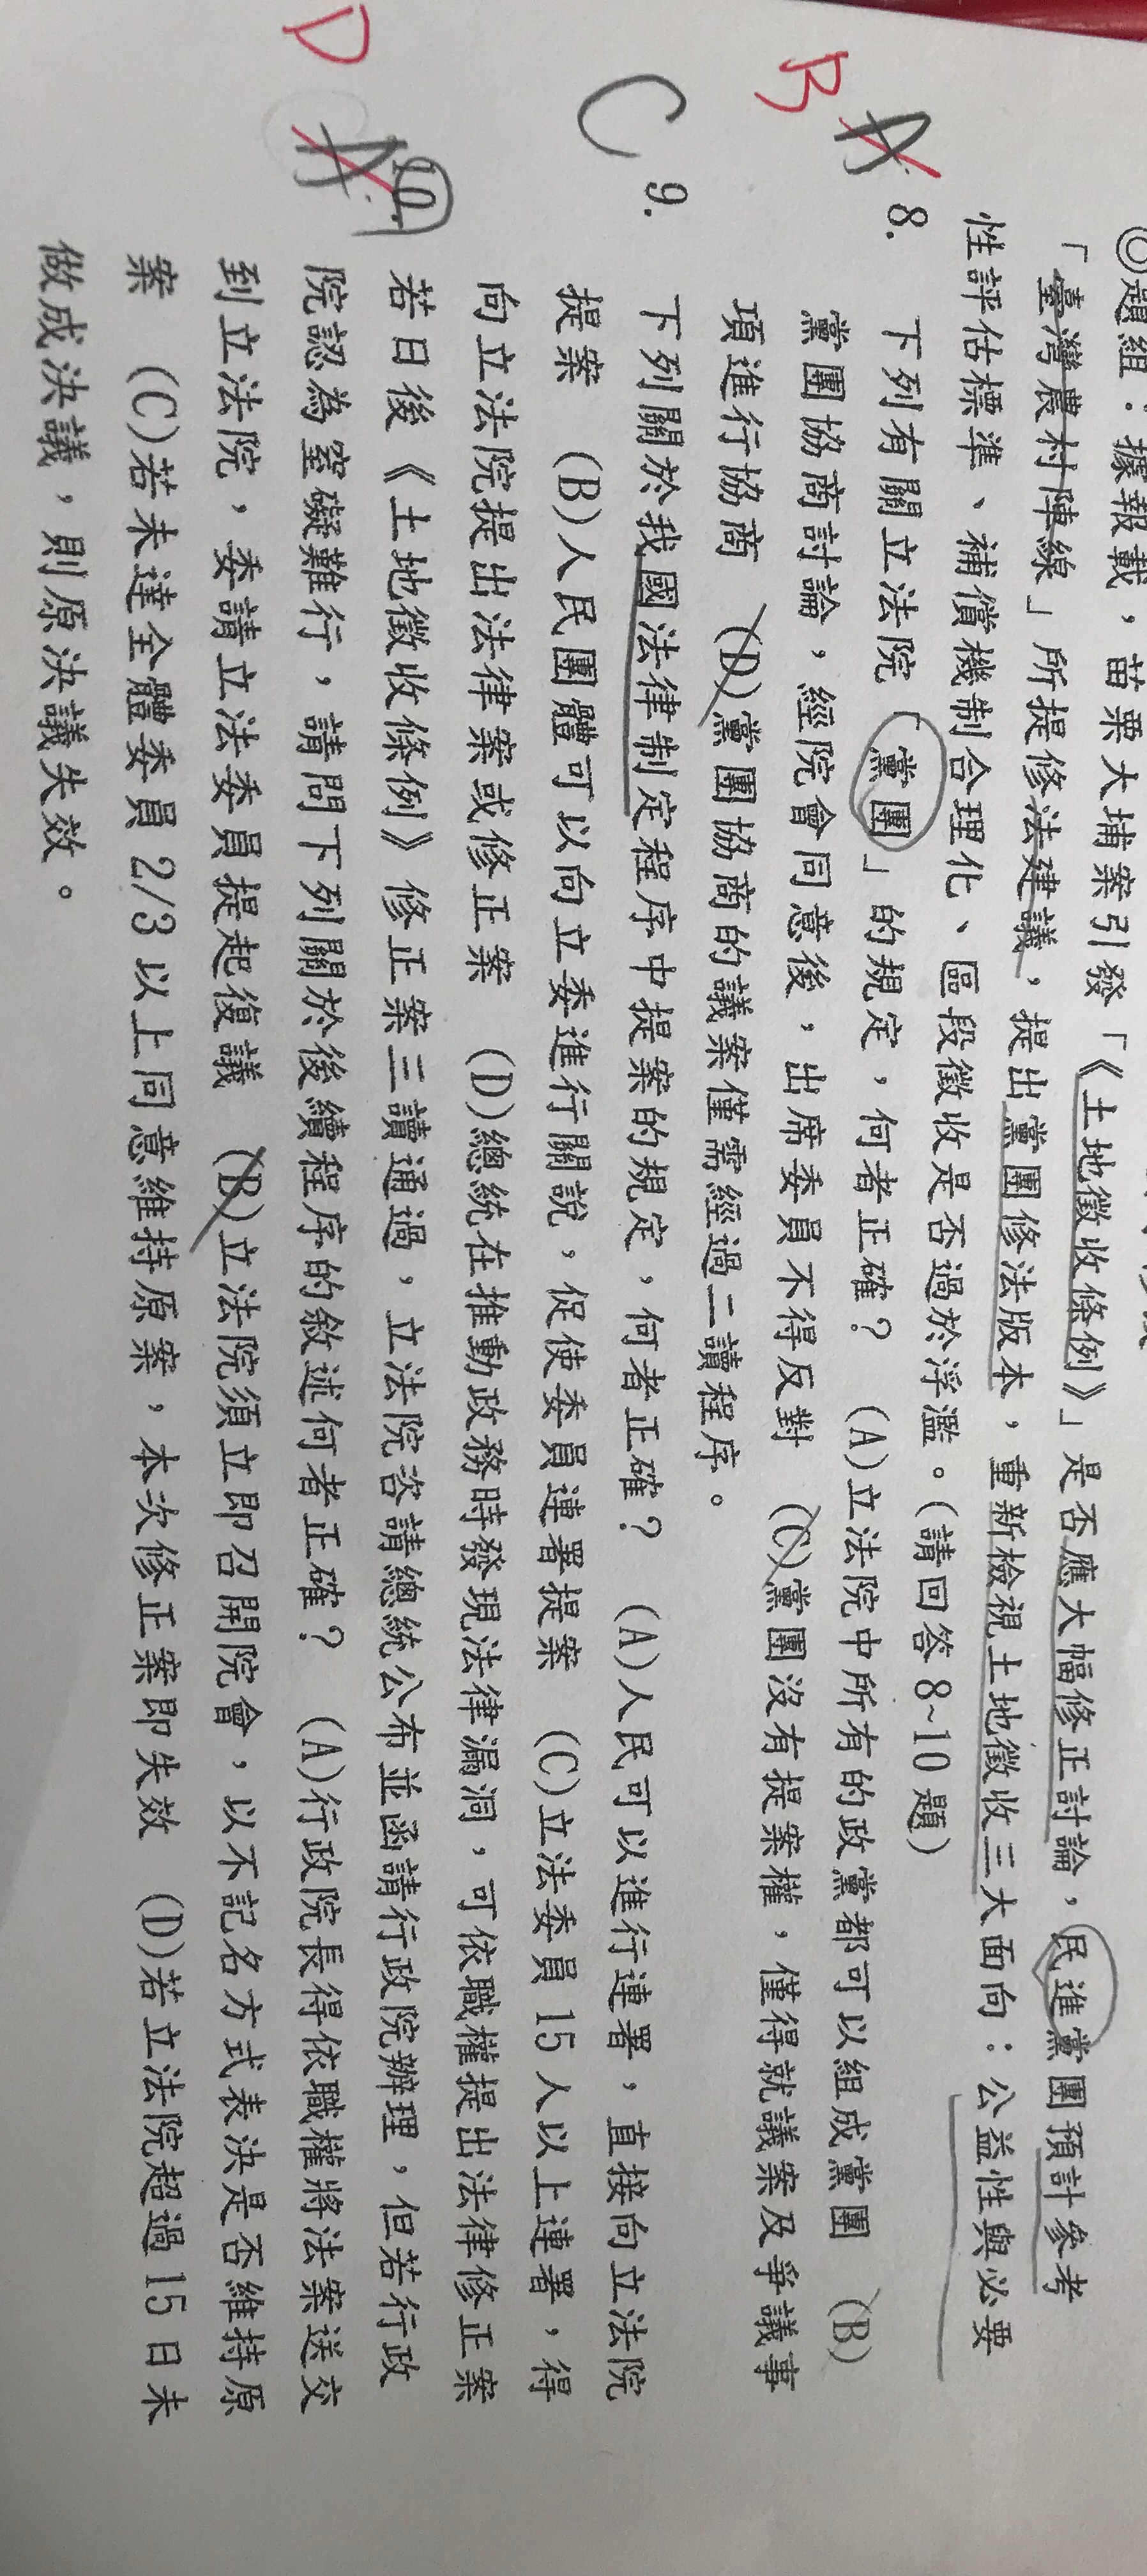 ◎題組：據報載，苗栗大埔案引發「《土地徵收條例》」是否應大幅修正討論，民進黨團預計參考
「臺灣農村陣線」所提修法建議，提出黨團修法版本，重新檢視土地徵收三大面向：公益性與必要
性評估標準、補償機制合理化、區段徵收是否過於浮濫。(請回答 8~10 題)
B A 8. 下列有關立法院「黨團」的規定，何者正確？ (A)立法院中所有的政黨都可以組成黨團 (B)
黨團協商討論，經院會同意後，出席委員不得反對 (C)黨團沒有提案權，僅得就議案及爭議事
項進行協商 (D)黨團協商的議案僅需經過二讀程序。
C 9. 下列關於我國法律制定程序中提案的規定，何者正確？ (A)人民可以進行連署，直接向立法院
提案 (B)人民團體可以向立委進行關說，促使委員連署提案 (C)立法委員 15 人以上連署，得
向立法院提出法律案或修正案 (D)總統在推動政務時發現法律漏洞，可依職權提出法律修正案
D A 10. 若日後《土地徵收條例》修正案三讀通過，立法院咨請總統公布並函請行政院辦理，但若行政
院認為窒礙難行，請問下列關於後續程序的敘述何者正確？ (A)行政院長得依職權將法案送交
到立法院，委請立法委員提起復議 (B)立法院須立即召開院會，以不記名方式表決是否維持原
案 (C)若未達全體委員 2/3 以上同意維持原案，本次修正案即失效 (D)若立法院超過 15 日未
做成決議，則原決議失效。